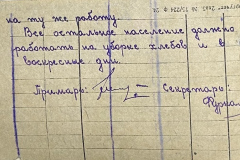 на ту же работу.
Все остальное население должно
работать на уборке хлебов и в
воскресние дни.
Примарь: Секретарь: